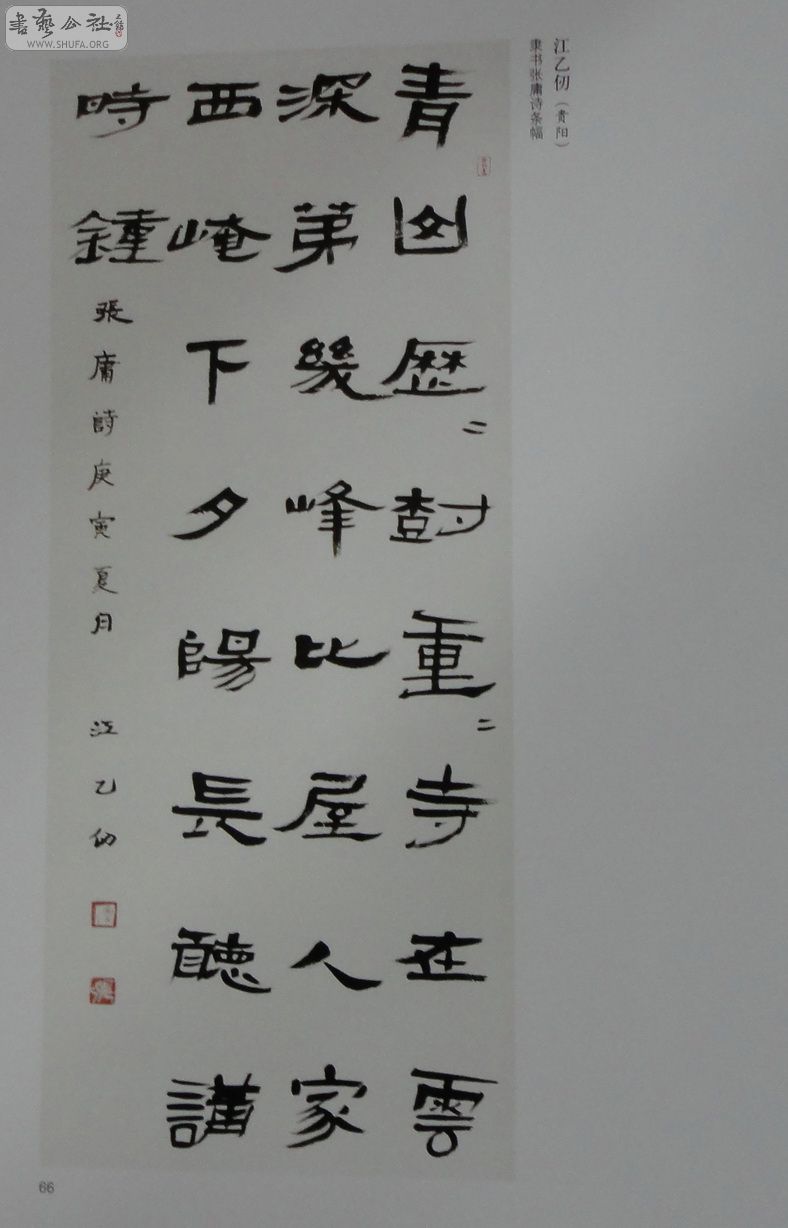 書藝公社
WWW.SHUFA.ORG
江乙仞（青阳）
隶书张庸诗条幅
青歷二尌重二寺在雲
深第幾峰比屋人家
西崦下夕陽長聽講
時鍾
張庸詩庚寅夏月 江乙仞
66